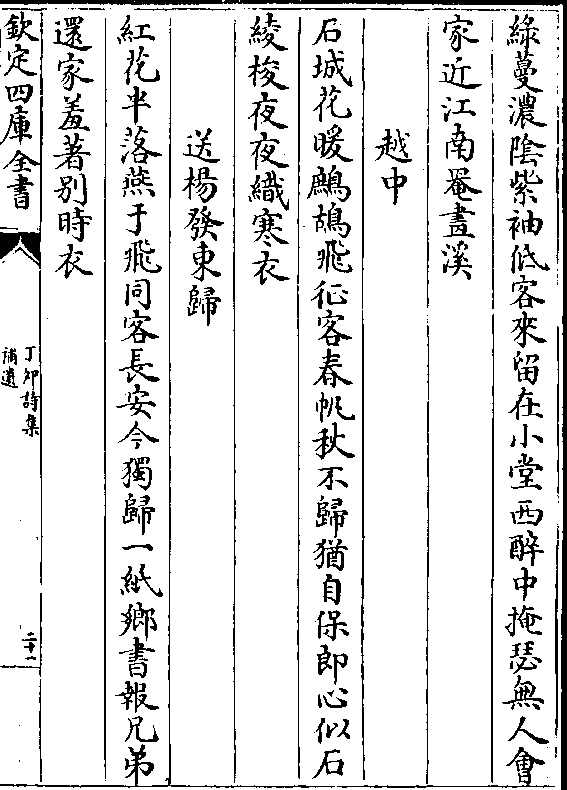 綠蔓濃陰紫袖低客來留在小堂西醉中掩瑟無人會
家近江南罨畫溪
越中
石城花暖鷓鴣飛征客春帆秋不歸猶自保郎心似石
綾梭夜夜織寒衣
送楊發東歸
紅花半落燕于飛同客長安今獨歸一紙鄉書報兄弟
還家羞著别時衣
欽定四庫全書
丁卯詩集
補遺
二十一